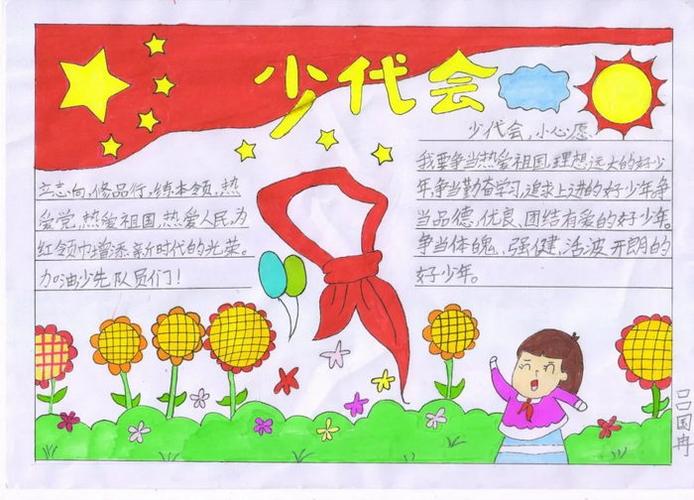 少代会
立志向,修品行,练本领,热
爱党,热爱祖国,热爱人民,为
红领巾增添新时代的光荣。
加油少先队员们!
少代会,小心愿、
我要争当热爱祖国,理想远大的好少
年,争当勤奋学习,追求上进的好少年,争
当品德,优良、团结有爱的好少年。
争当体魄、强健,活波开朗的
好少年。
吕国冉